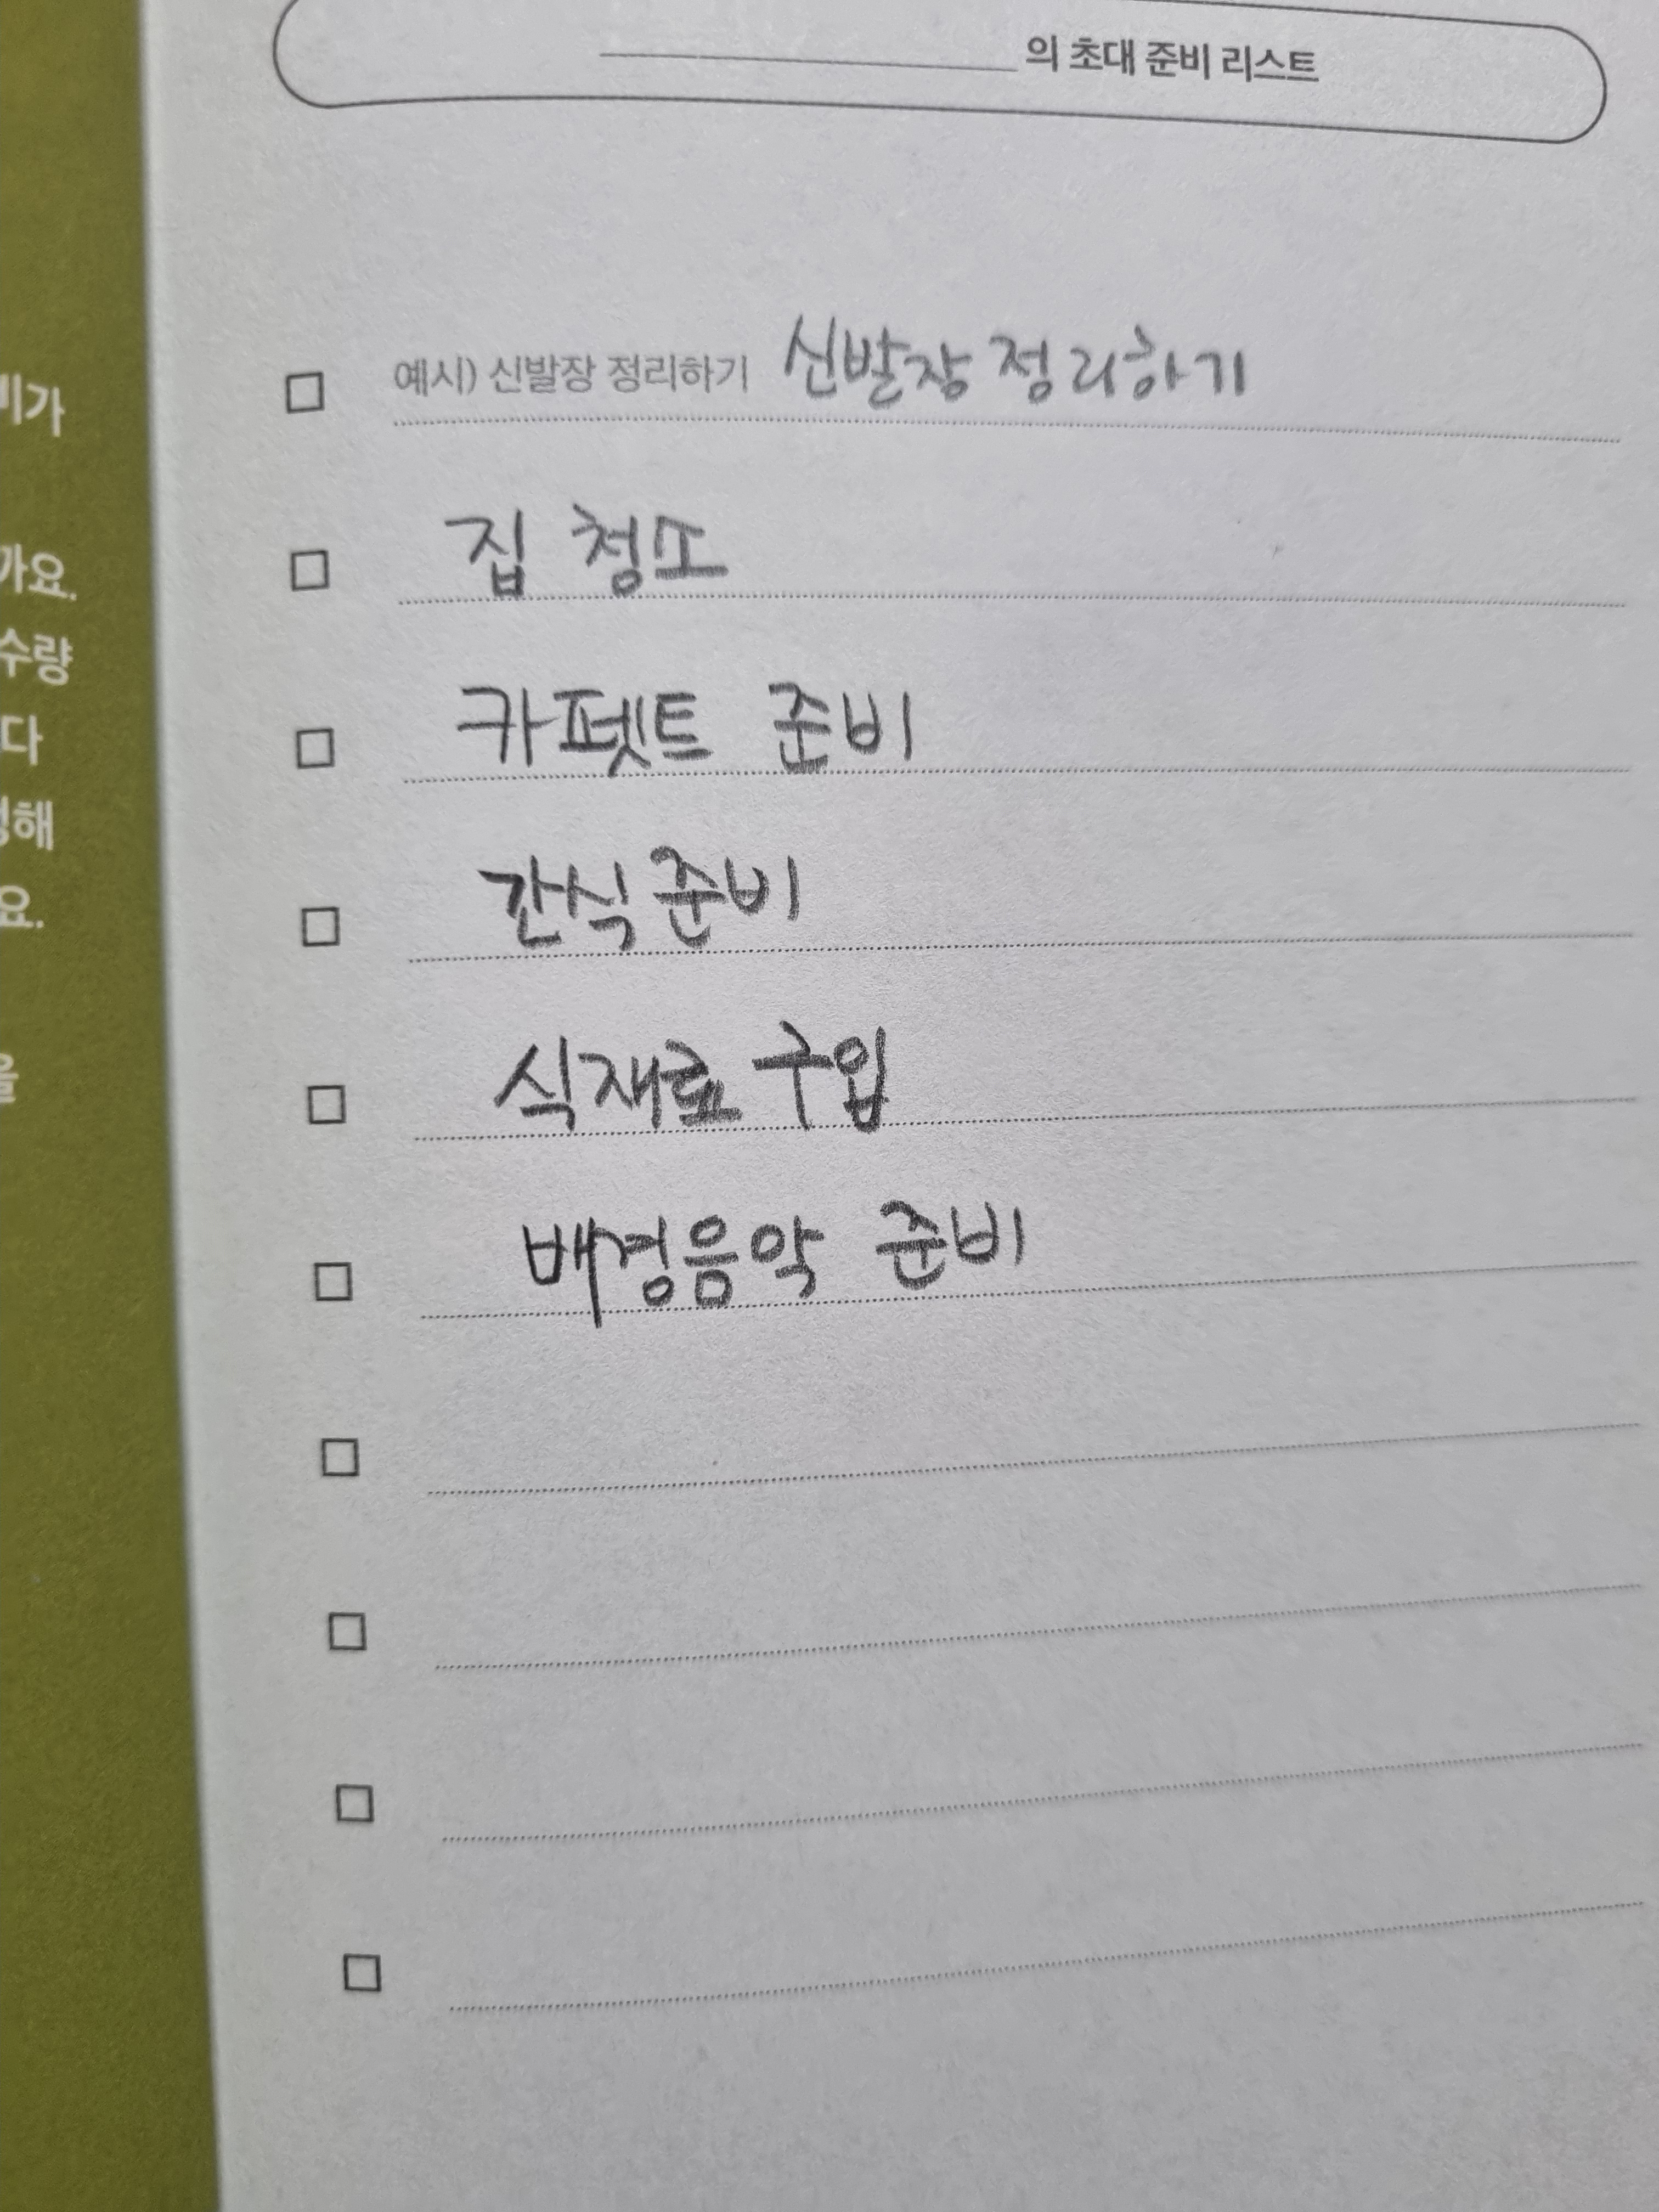 의 초대 준비 리스트
예시) 신발장 정리하기 신발장 정리하기
집 청소
카펫트 준비
간식 준비
식재료 구입
배경음악 준비
비가
까요.
수량
다
해
요.
을